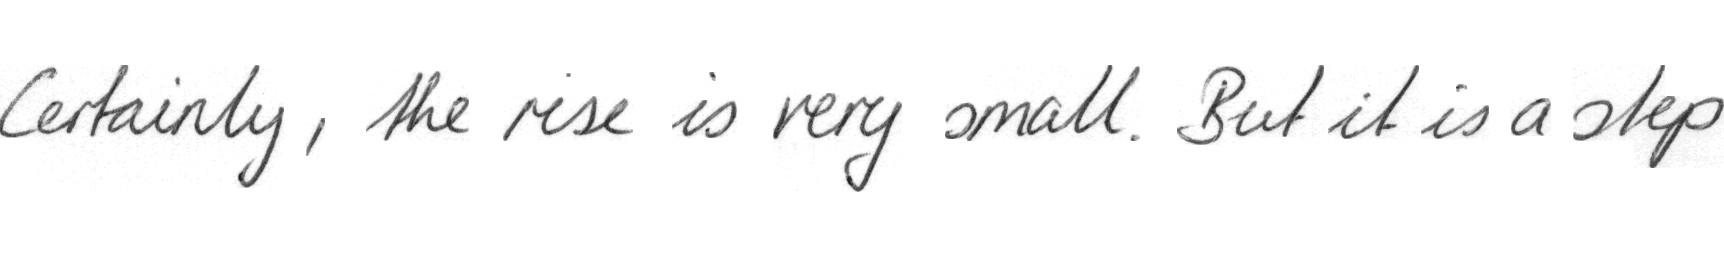 Certainly, the rise is very small. But it is a step